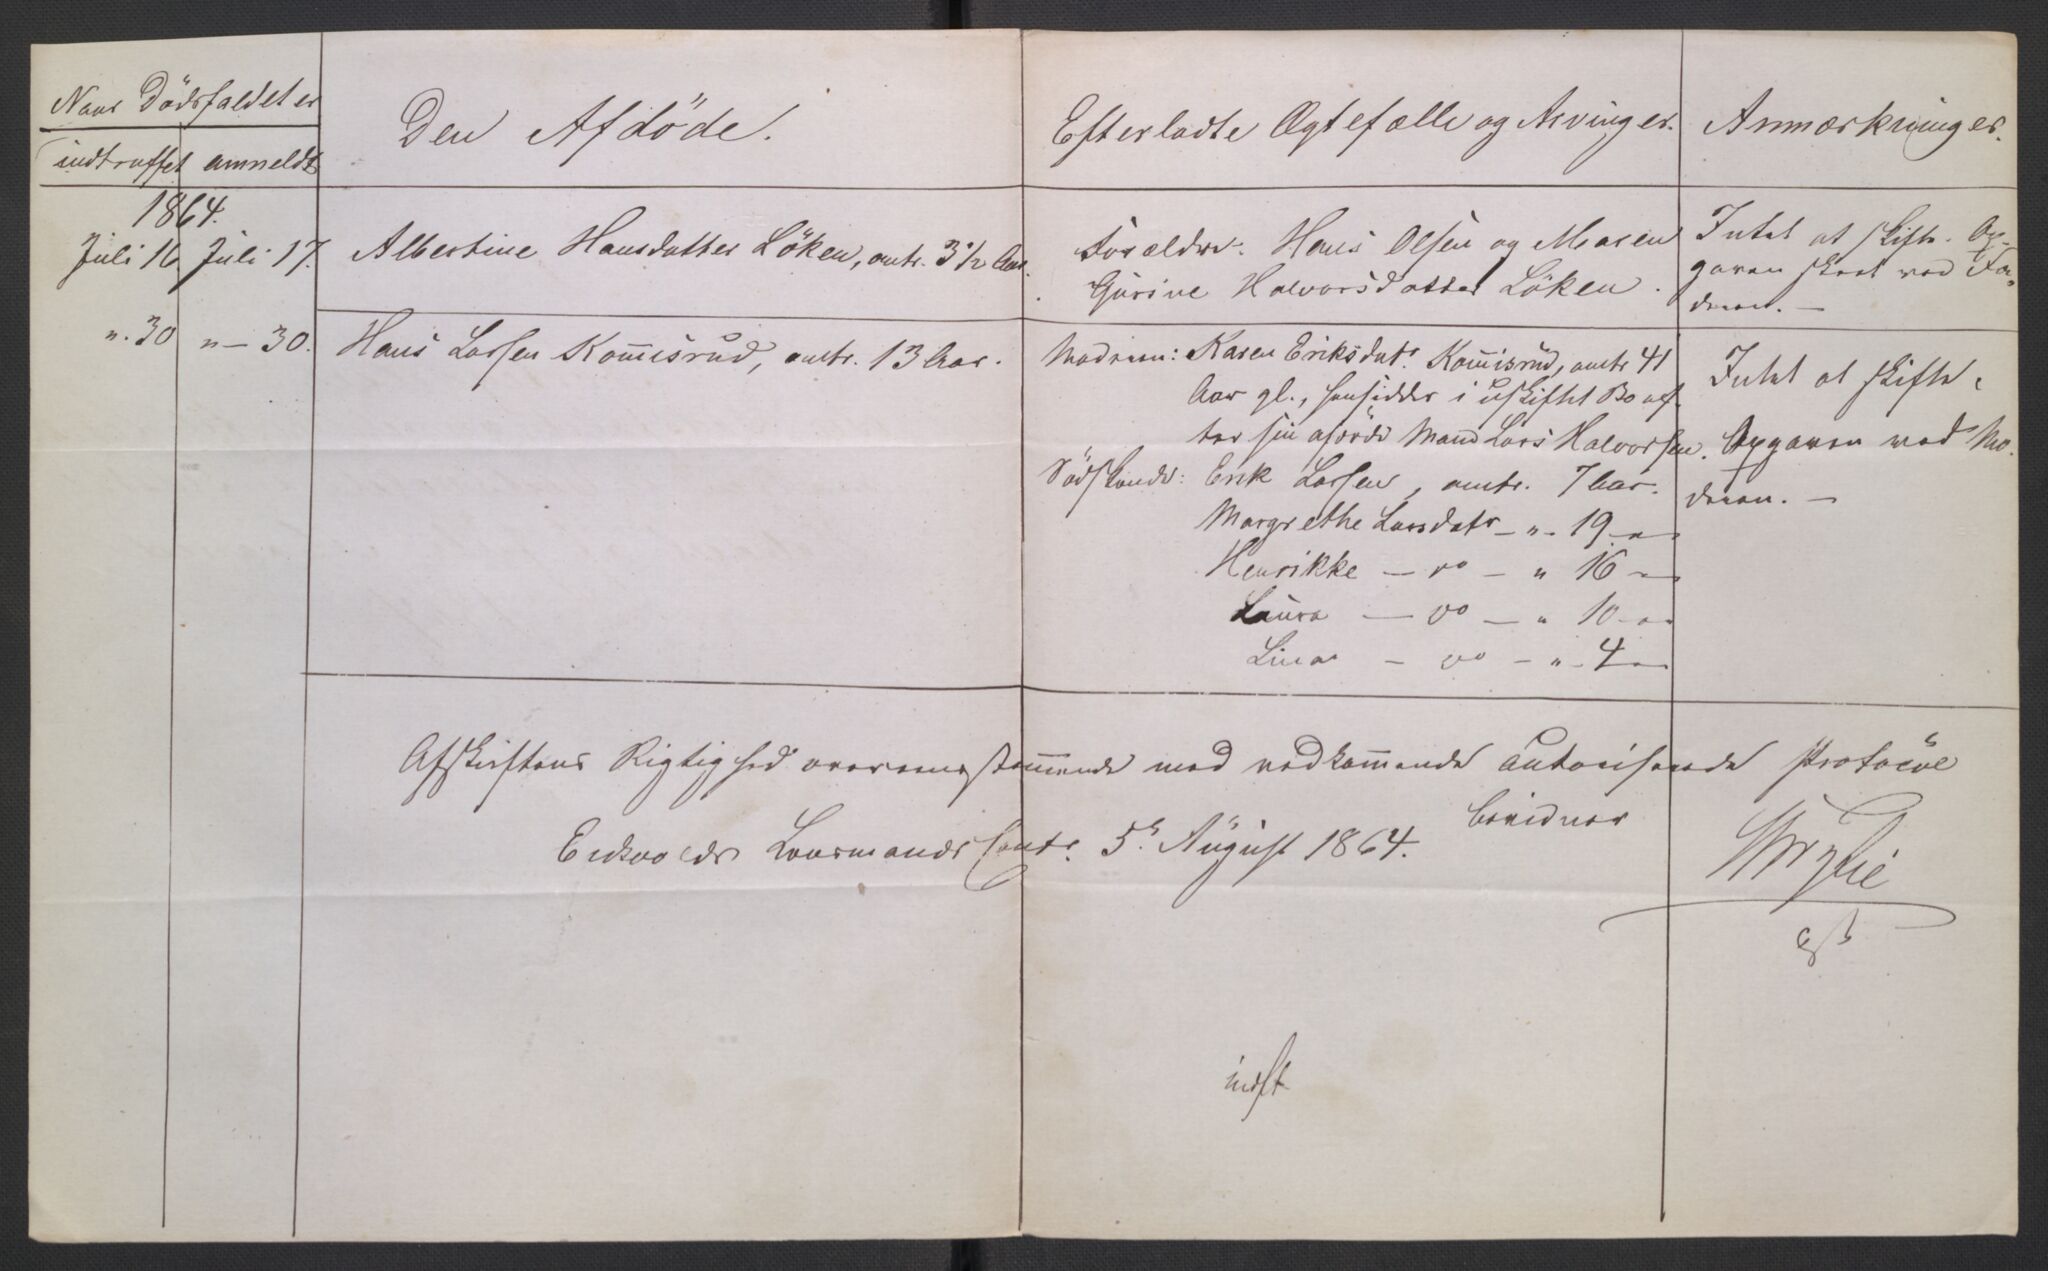 Naar Dödsfaldet er
indtruffet anmeldt
Den Afdöde.
Efterladte Ægtefælle og Arvinger.
Anmærkninger.
1864.
Juli 16 Juli 17.
Albertine Hansdatter Löken, omtr. 3 1/2 Aar.
Forældre: Hans Olsen og Maren
Gurine Halvorsdatter Löken.
Intet at skifte. Op-
gaven skeet ved Fa-
deren. —
" 30 " — 30.
Hans Larsen Kommisrud, omtr. 13 Aar.
Moderen: Karen Eriksdatr. Kommisrud, omtr 41
Aar gl., hensidder i uskiftet Bo ef-
ter sin afdöde Mand Lars Halvorsen.
Södskende: Erik Larsen, omtr. 7 Aar.
Margrethe Larsdatr — " - 19 — "
Henrikke — do — " 16 — "
Laura — do — " 10 — "
Lina — do — " - 4 — "
Intet at skifte.
Opgaven ved Mo-
deren. —
Afskriftens Rigtighed overeensstemmende med vedkommende autoriserede Protocol
bevidner
Eidsvolds Lensmands Contr. 5 August 1864.
indft